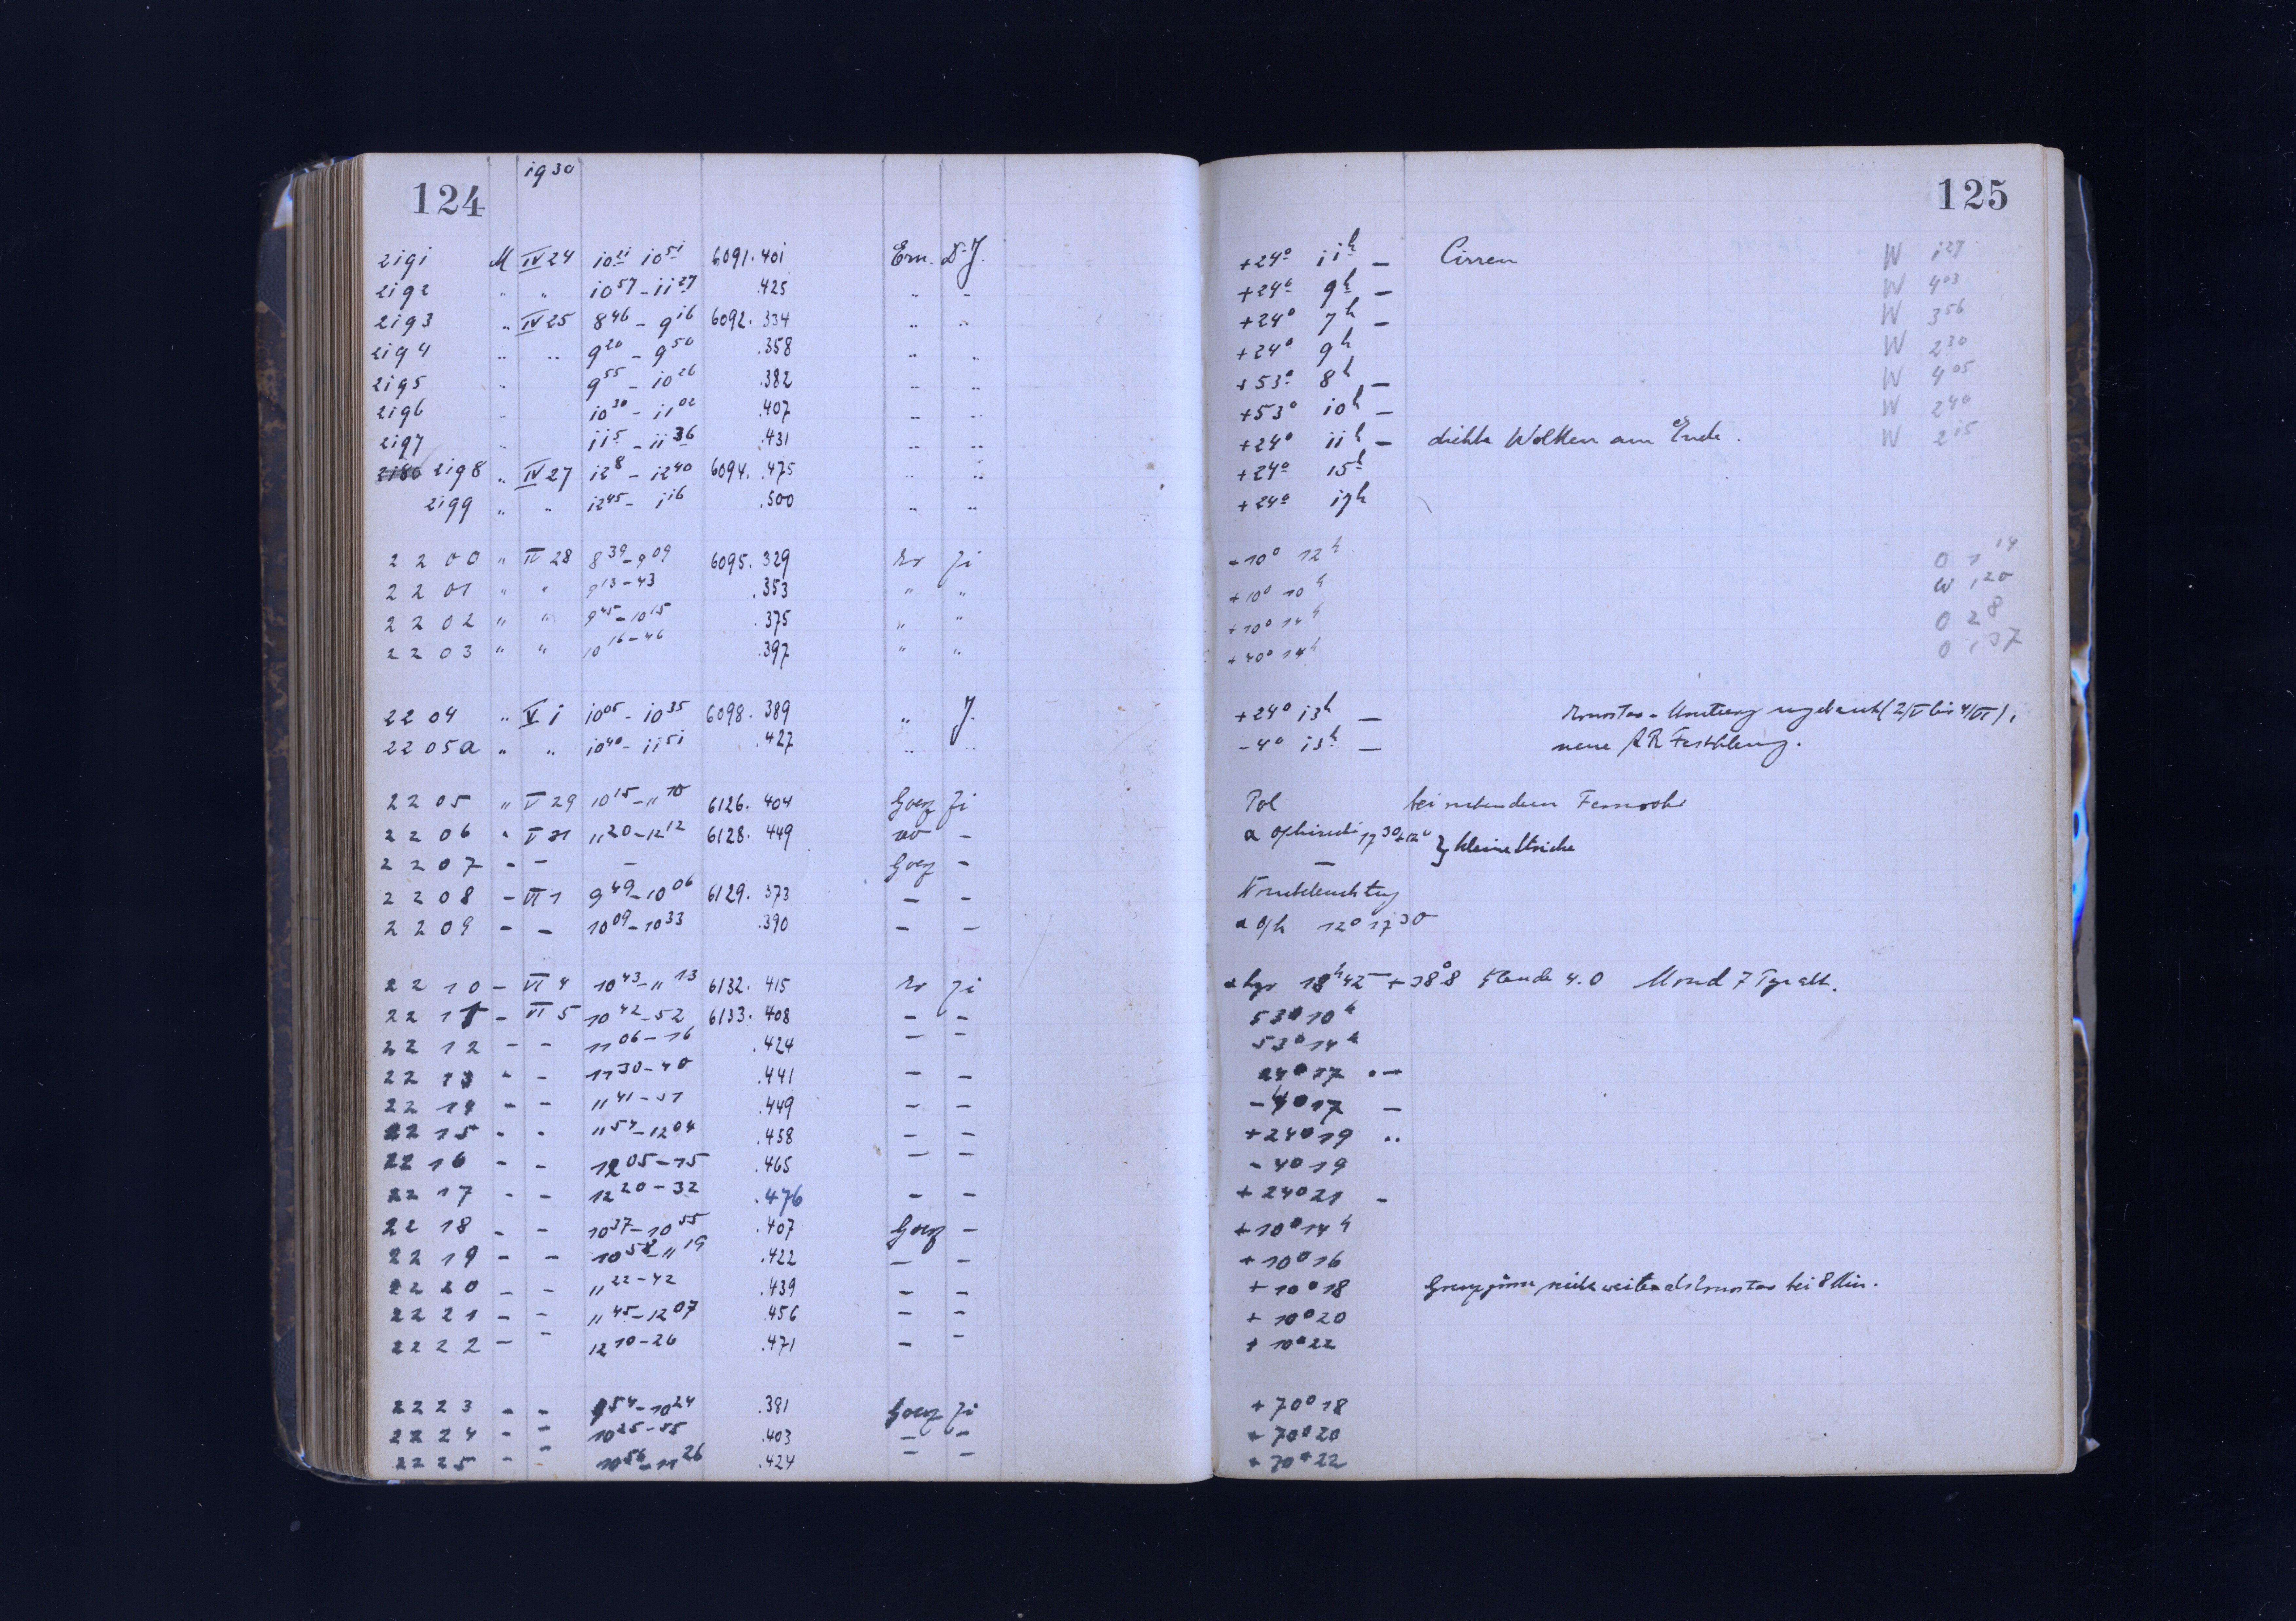 1930
124
2191 M IV 24 10 21 10 51 6091.401 Ern. D.J.
2192 " " 10 57 - 11 27 .425 " "
2193 " IV 25 8 46 - 9 16 6092.334 " "
2194 " " 9 20 - 9 50 .358 " "
2195 " 9 55 - 10 26 .382 " "
2196 " 10 30 - 11 02 .407 " "
2197 " 11 5 - 11 36 .431 " "
2198 " IV 27 12 8 - 12 40 6094.475 " "
2199 " " 12 45 - 1 16 .500 " "
2200 " IV 28 8 39 - 9 09 6095.329 Er Ji
2201 " " 9 13 - 43 .353 " "
2202 " " 9 45 - 10 15 .375 " "
2203 " " 10 16 - 46 .397 " "
2204 " V 1 10 05 - 10 35 6098.389 " J.
2205a " " 10 40 - 11 51 .427 " "
2205 " V 29 10 15 - 11 10 6126.404 Goerz Ji
2206 " V 31 11 20 - 12 12 6128.449 -
2207 - - - Goerz -
2208 - VI 1 9 49 - 10 06 6129.373 - -
2209 - - 10 09 - 10 33 .390 - -
2210 - VI 4 10 43 - 11 13 6132.415 Er Ji
2211 - VI 5 10 42 - 52 6133.408 - -
2212 - - 11 06 - 16 .424 - -
2213 - - 11 30 - 40 .441 - -
2214 - - 11 41 - 51 .449 - -
2215 - - 11 54 - 12 04 .458 - -
2216 - - 12 05 - 15 .465 - -
2217 - - 12 20 - 32 .476 - -
2218 - - 10 37 - 10 55 .407 Goerz -
2219 - - 10 58 - 11 19 .422 - -
2220 - - 11 22 - 42 .439 - -
2221 - - 11 45 - 12 07 .456 - -
2222 - - 12 10 - 26 .471 - -
2223 - - 9 54 - 10 24 .381 Goerz Ji
2224 - - 10 25 - 55 .403 - -
2225 - - 10 56 - 11 26 .424 - -
125
+24° 11h – Cirren W 1 27
+24° 9h – W 4 03
+24° 7h – W 3 56
+24° 9h W 2 30
+53° 8h – W 4 05
+53° 10h – W 2 40
+24° 11h – dichte Wolken am Ende. W 2 15
+24° 15h
+24° 17h
+10° 12h O 1 14
+10° 10h W 1 20
+10° 14h O 2 8
+40° 14h O 1 37
+24° 13h – Ernostar - (2/V bis 4/VI),
-4° 13h – neue AR
Pol bei Fernrohr
α Ophiuchi 17 30 +12° } kleine Striche
–
α Oph 12° 17 30
α Lyr 18h 42m +38°8 Blende 4.0 Mond 7 Tge alt.
53° 10h
53° 14h
24° 17 –
-4° 17 –
+24° 19 ..
-4° 19
+24° 21 -
+10° 14h
+10° 16
+10° 18 weiter als Ernostar bei 8 Min.
+10° 20
+10° 22
+70° 18
+70° 20
+70° 22